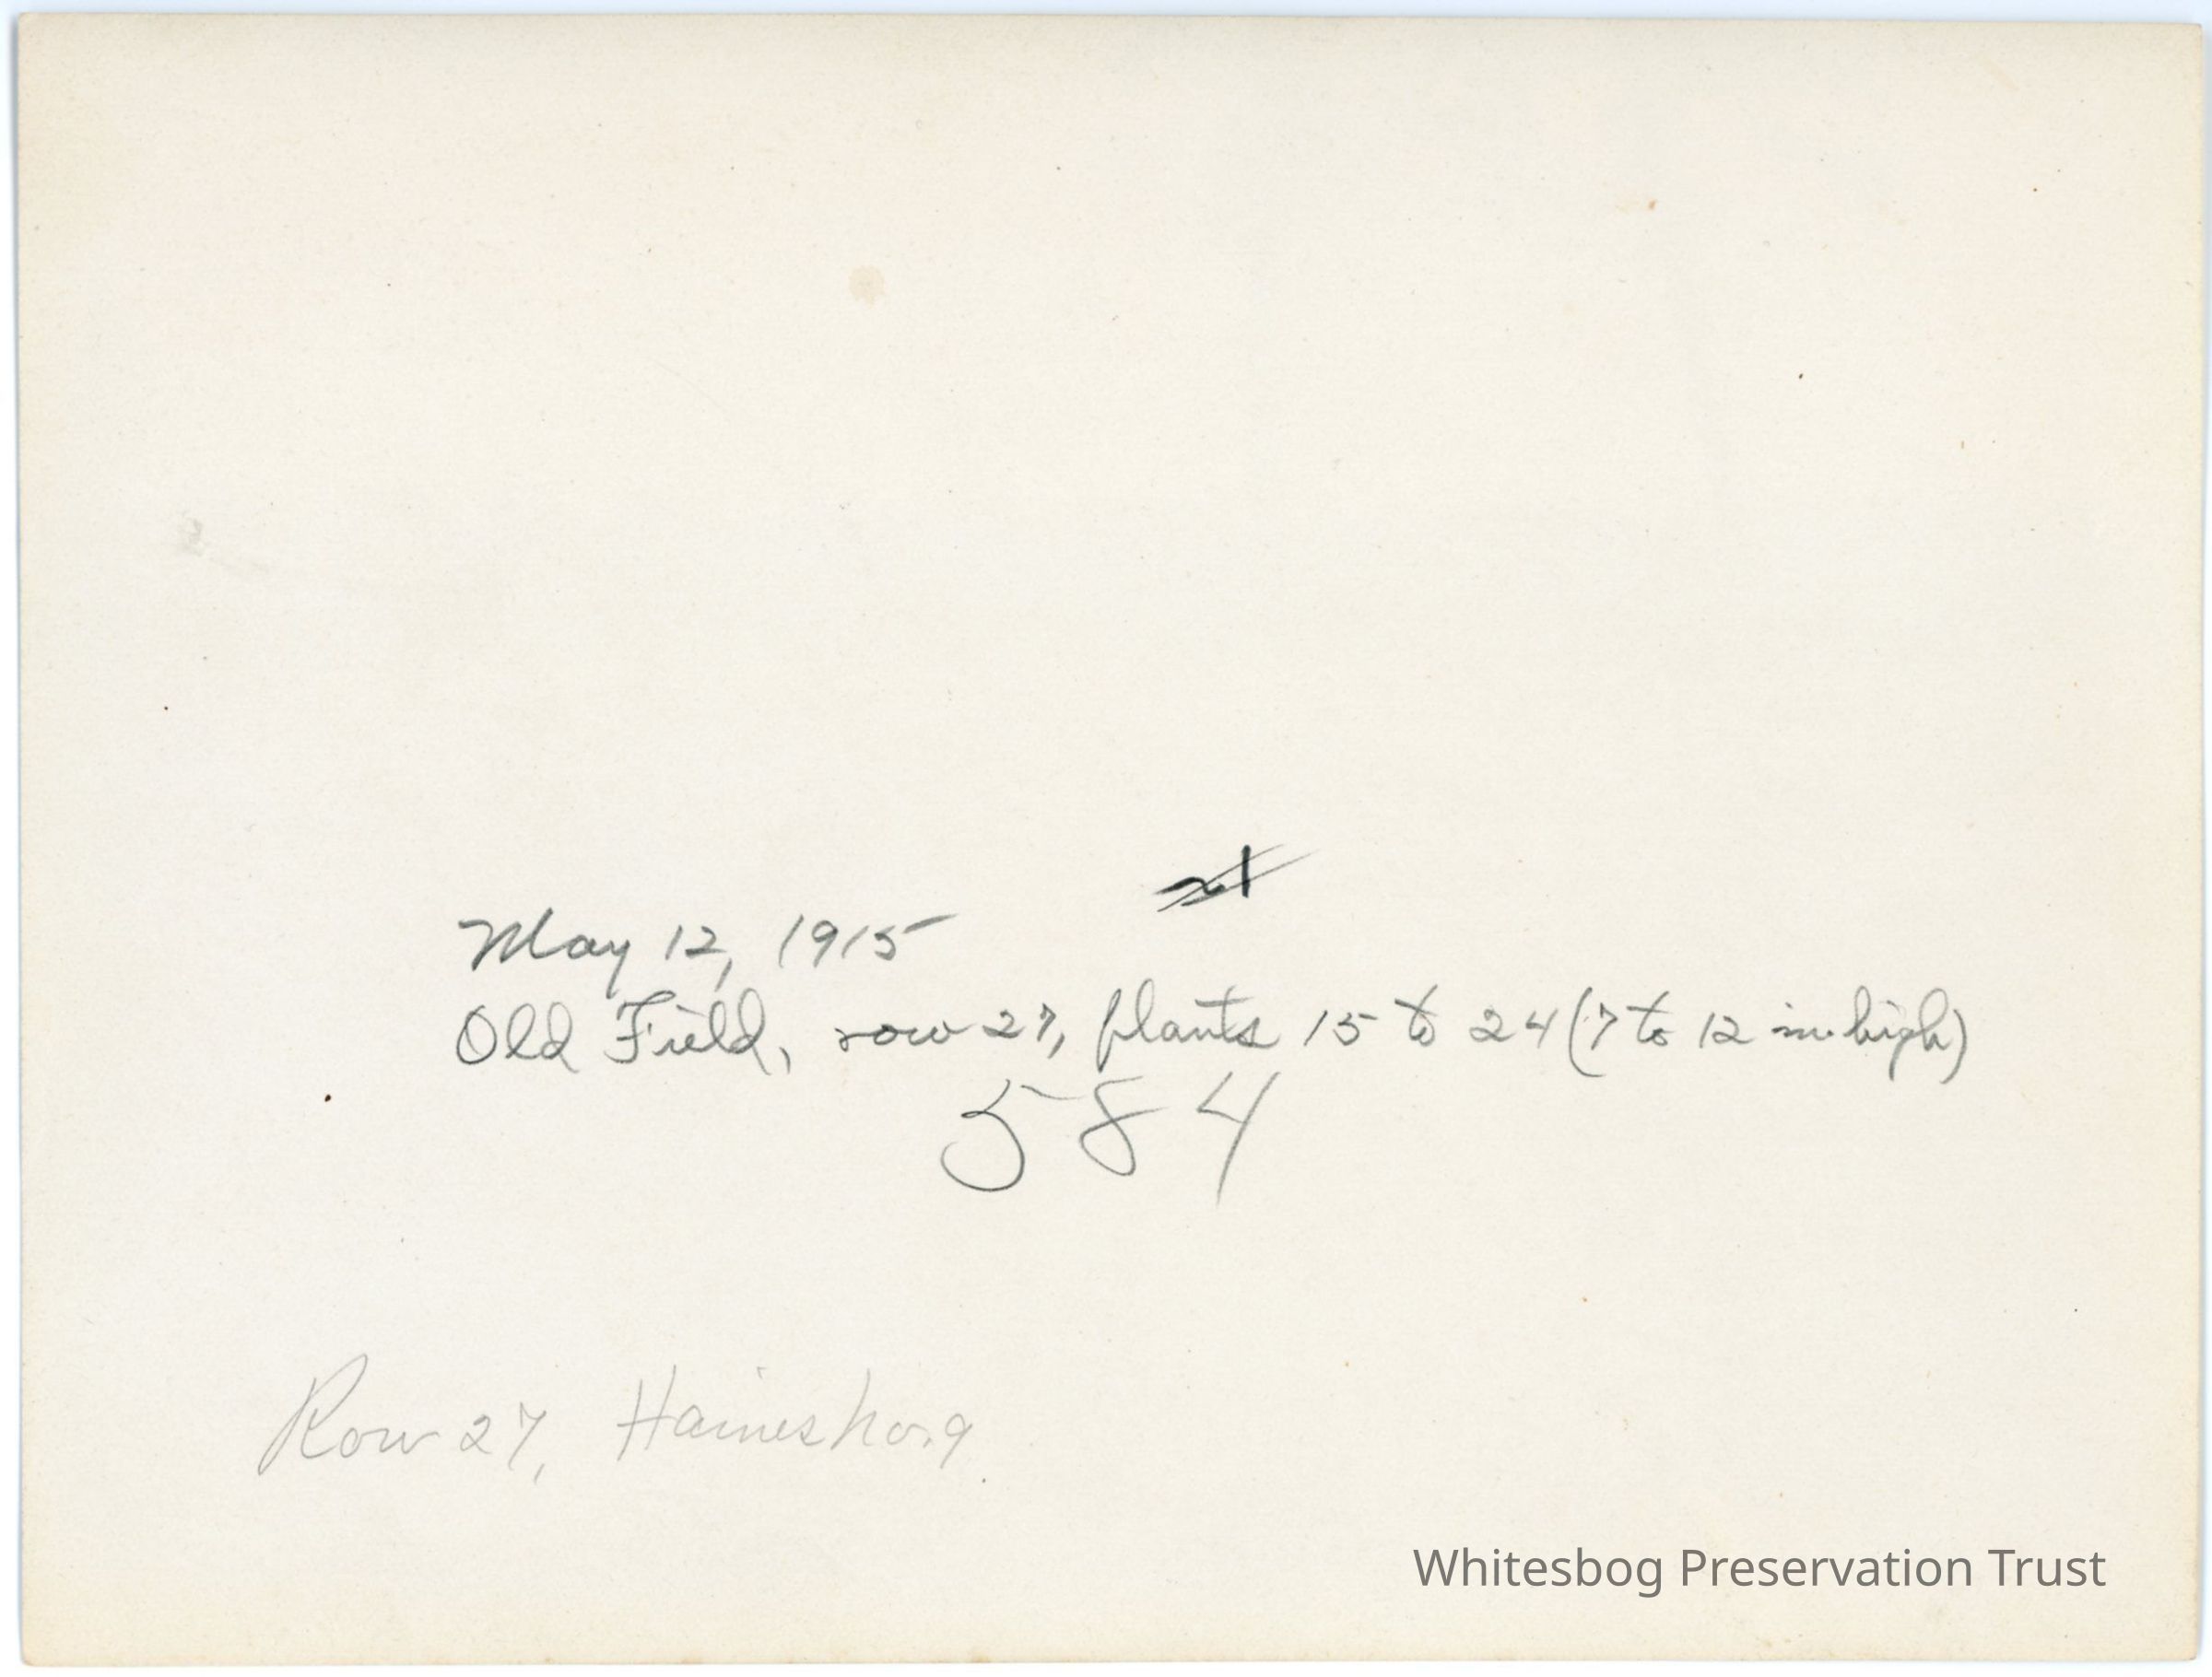 21
May 12, 1915
Old Field, row 27, plants 15 to 24 (7 to 12 in. high)
584
Row 27,
Whitesbog Preservation Trust